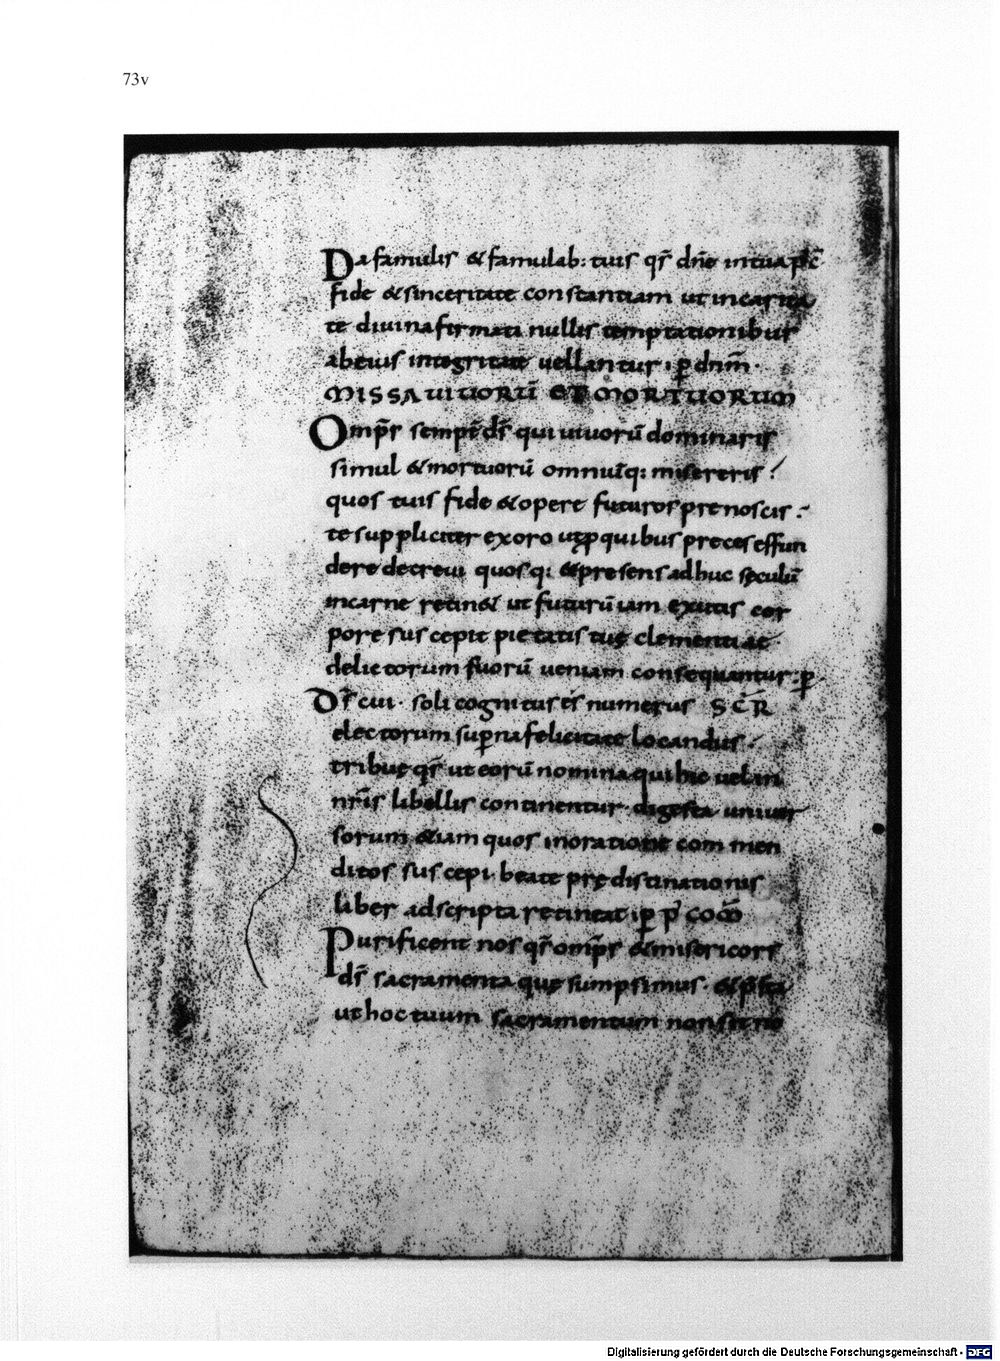 73v
Da famulis & famulab: tuis qs̄ dn̄e in tua p
fide & sinceritate constantiam ut in carita
te divina firmati nullis temptationibus
ab eius integritate vellantur · ꝑ dnm̄ ·
MISSA UIUORŪ ET MORTUORUM
Omp̄s sempt̄ ds̄ qui uiuorū dominaris
simul & mortuorū omniūq: misereris
quos tuis fide & opere futuros prenoscis :
te suppliciter exoro ut ꝓ quibus preces effun
dere decreui quosq: & presens adhuc sęculū
in carne retin& ut futurū iam exutis cor
pore suscepit pietatis tuę clementiae
delictorum suorū ueniam consequantur · ꝑ
Ds̄ cui · soli cognitus ēs numerus SCR̄
electorum suꝑna felicitate locandus ·
tribue qs̄ ut eorū nomina qui hic uel in
nr̄is libellis continentur digesta uniuer
sorum &iam quos in oratione commen
ditos suscepi beate prędistinationis
liber adscripta retineat ip ꝑ p̄ COM̄
Purificent nos qs̄ omp̄s & misericors
ds̄ sacramenta quę sumpsimus · & p̄sta
ut hoc tuum sacramentum non sit no
Digitalisierung gefördert durch die Deutsche Forschungsgemeinschaft - DFG